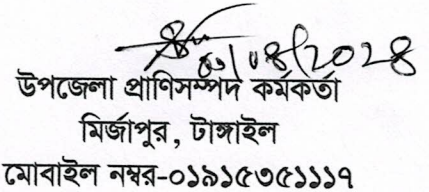 ০১/০৪/২০২৪
উপজেলা প্রাণিসম্পদ কর্মকর্তা
মির্জাপুর, টাঙ্গাইল
মোবাইল নম্বর-০১৯১৫৩৫১১১৭